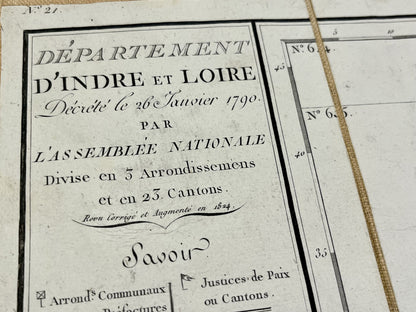 N.° 21.
DÉPARTEMENT
D'INDRE ET LOIRE
Décrété le 26 Janvier 1790.
PAR
L'ASSEMBLÉE NATIONALE
Divise en 3 Arrondissemens
et en 23 Cantons.
Revu Corrigé et Augmenté en 1824.
Savoir
Arrond.s Communaux
Préfectures
Justices de Paix
ou Cantons.
5
10
45
N.°
40
N.°
35